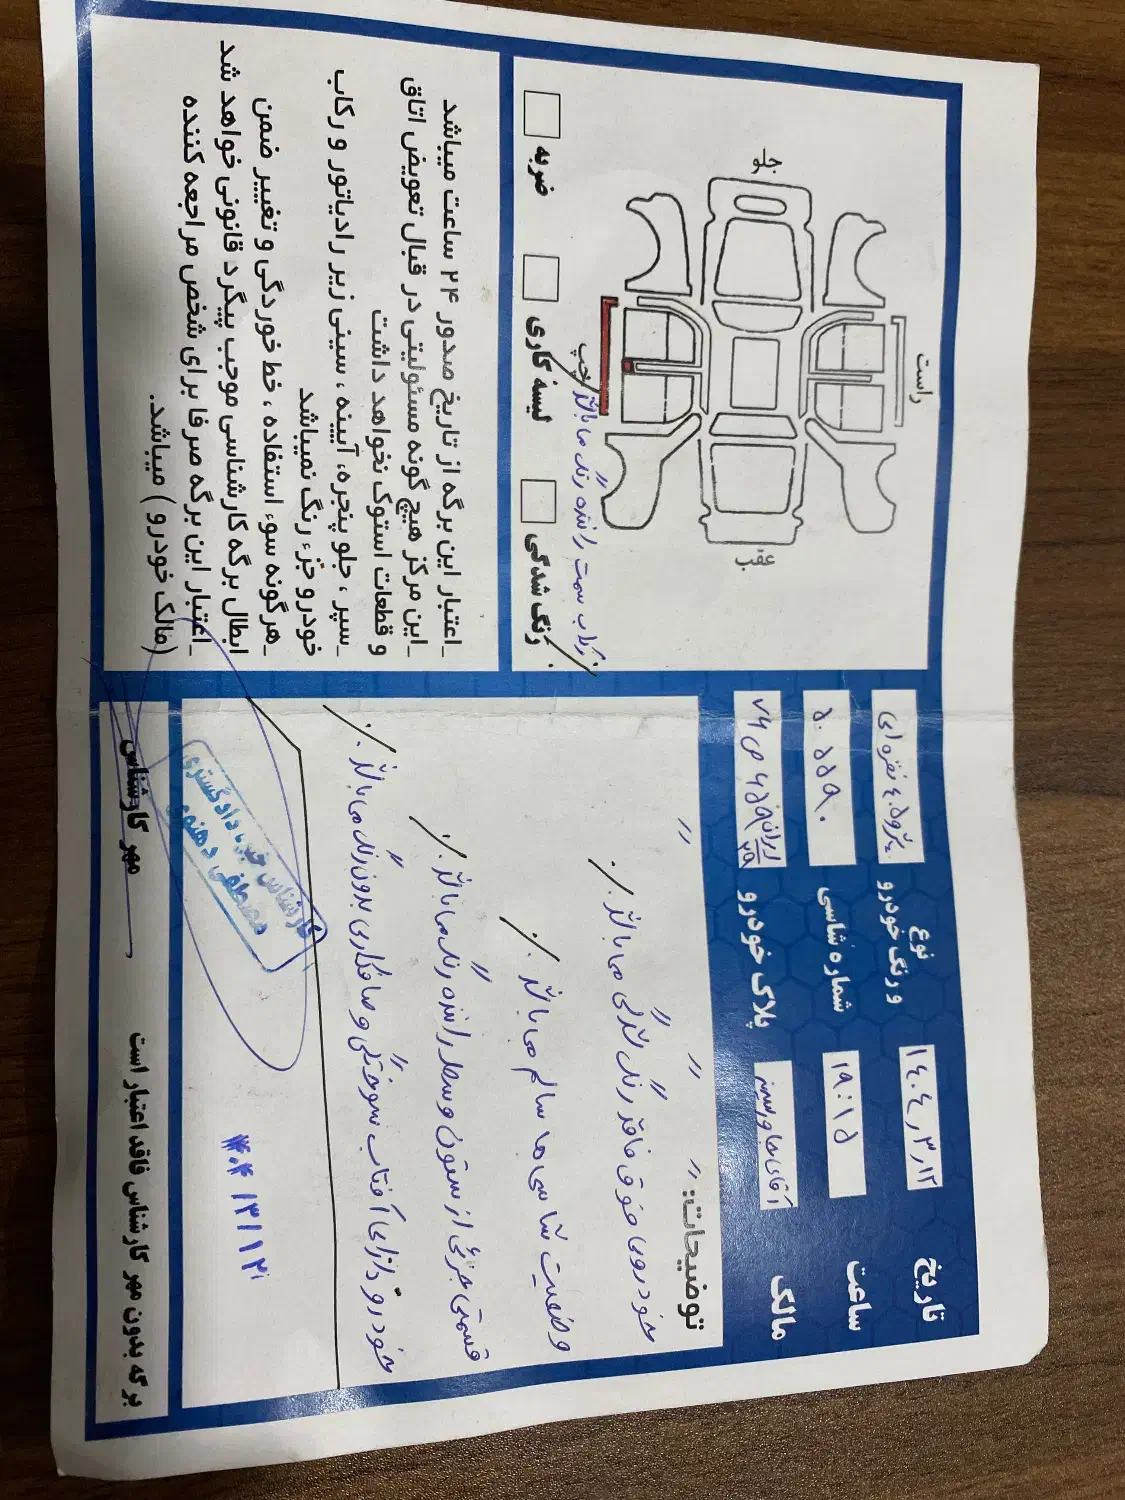 تاریخ ۱۴۰۴ر۳ر۱۲
نوع و رنگ خودرو پژو ۴۰۵ نقره ای
ساعت ۱۹:۱۵
شماره شاسی ۵۰۵۵۹۰
مالک آقای
پلاک خودرو ایران
توضیحات:
خودروی فوق فاقد رنگ شدگی می باشد
وضعیت شاسی ها سالم می باشد
قسمتی جزئی از ستون وسط راننده رنگ می باشد
خودرو دارای آفتاب سوختگی و صافکاری بدون رنگ می باشد
کارشناس خبره دادگستری
مصطفی دهنوی
۴۰۴/۳/۱۲
مهر کارشناس
برگه بدون مهر کارشناس فاقد اعتبار است
راست
جلو
عقب
چپ
رکاب سمت راننده رنگ می باشد
ضربه
لیسه کاری
رنگ شدگی
_اعتبار این برگه از تاریخ صدور ۲۴ ساعت میباشد
_این مرکز هیچ گونه مسئولیتی در قبال تعویض اتاق
و قطعات استوک نخواهد داشت
_سپر ، جلو پنجره، آیینه ، سینی زیر رادیاتور و رکاب
خودرو جزء رنگ نمیباشد
_هرگونه سوء استفاده ، خط خوردگی و تغییر ضمن
ابطال برگه کارشناسی موجب پیگرد قانونی خواهد شد
_اعتبار این برگه صرفا برای شخص مراجعه کننده
(مالک خودرو ) میباشد.